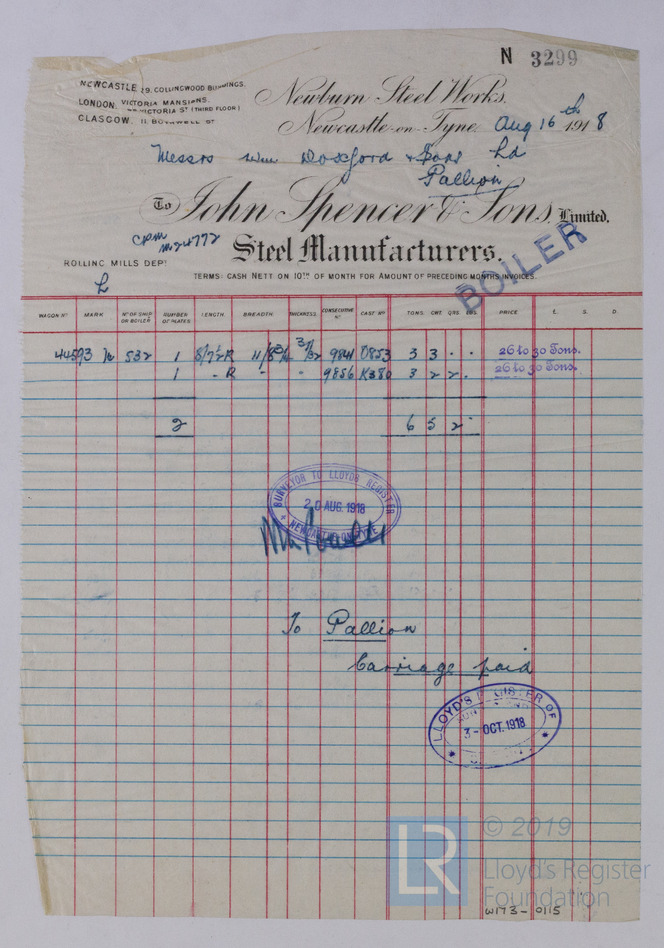 N 3299
NEWCASTLE 29, COLLINGWOOD BUILDINGS.
LONDON, VICTORIA MANSIONS,
VICTORIA ST (THIRD FLOOR)
GLASGOW, 11, BOTHWELL ST
Newburn Steel Works,
Newcastle-on-Tyne, Aug 16th 1918
Messrs Wm Doxford & Sons Ld
Pallion
To John Spencer & Sons, Limited,
CPM
M24772
Steel Manufacturers.
ROLLING MILLS DEPT
TERMS: CASH NETT ON 10TH OF MONTH FOR AMOUNT OF PRECEDING MONTHS INVOICES.
BOILER
WAGON No MARK No OF SHIP OR BOILER NUMBER OF PLATES LENGTH BREADTH THICKNESS CONSECUTIVE No CAST No TONS CWT QRS LBS PRICE £ S. D.
44593 532 1 8/7½ R 11/8¾ 9841 0853 3 3 . . 26 to 30 Tons.
1 - R - - 9856 K380 3 2 2 . 26 to 30 Tons.
2 6 5 2
SURVEYOR TO LLOYDS REGISTER
20 AUG. 1918
NEWCASTLE-ON-TYNE
To Pallion
Carriage paid
LLOYD'S REGISTER OF
3-OCT.1918
© 2019
LR Lloyd's Register
Foundation
W173-0115